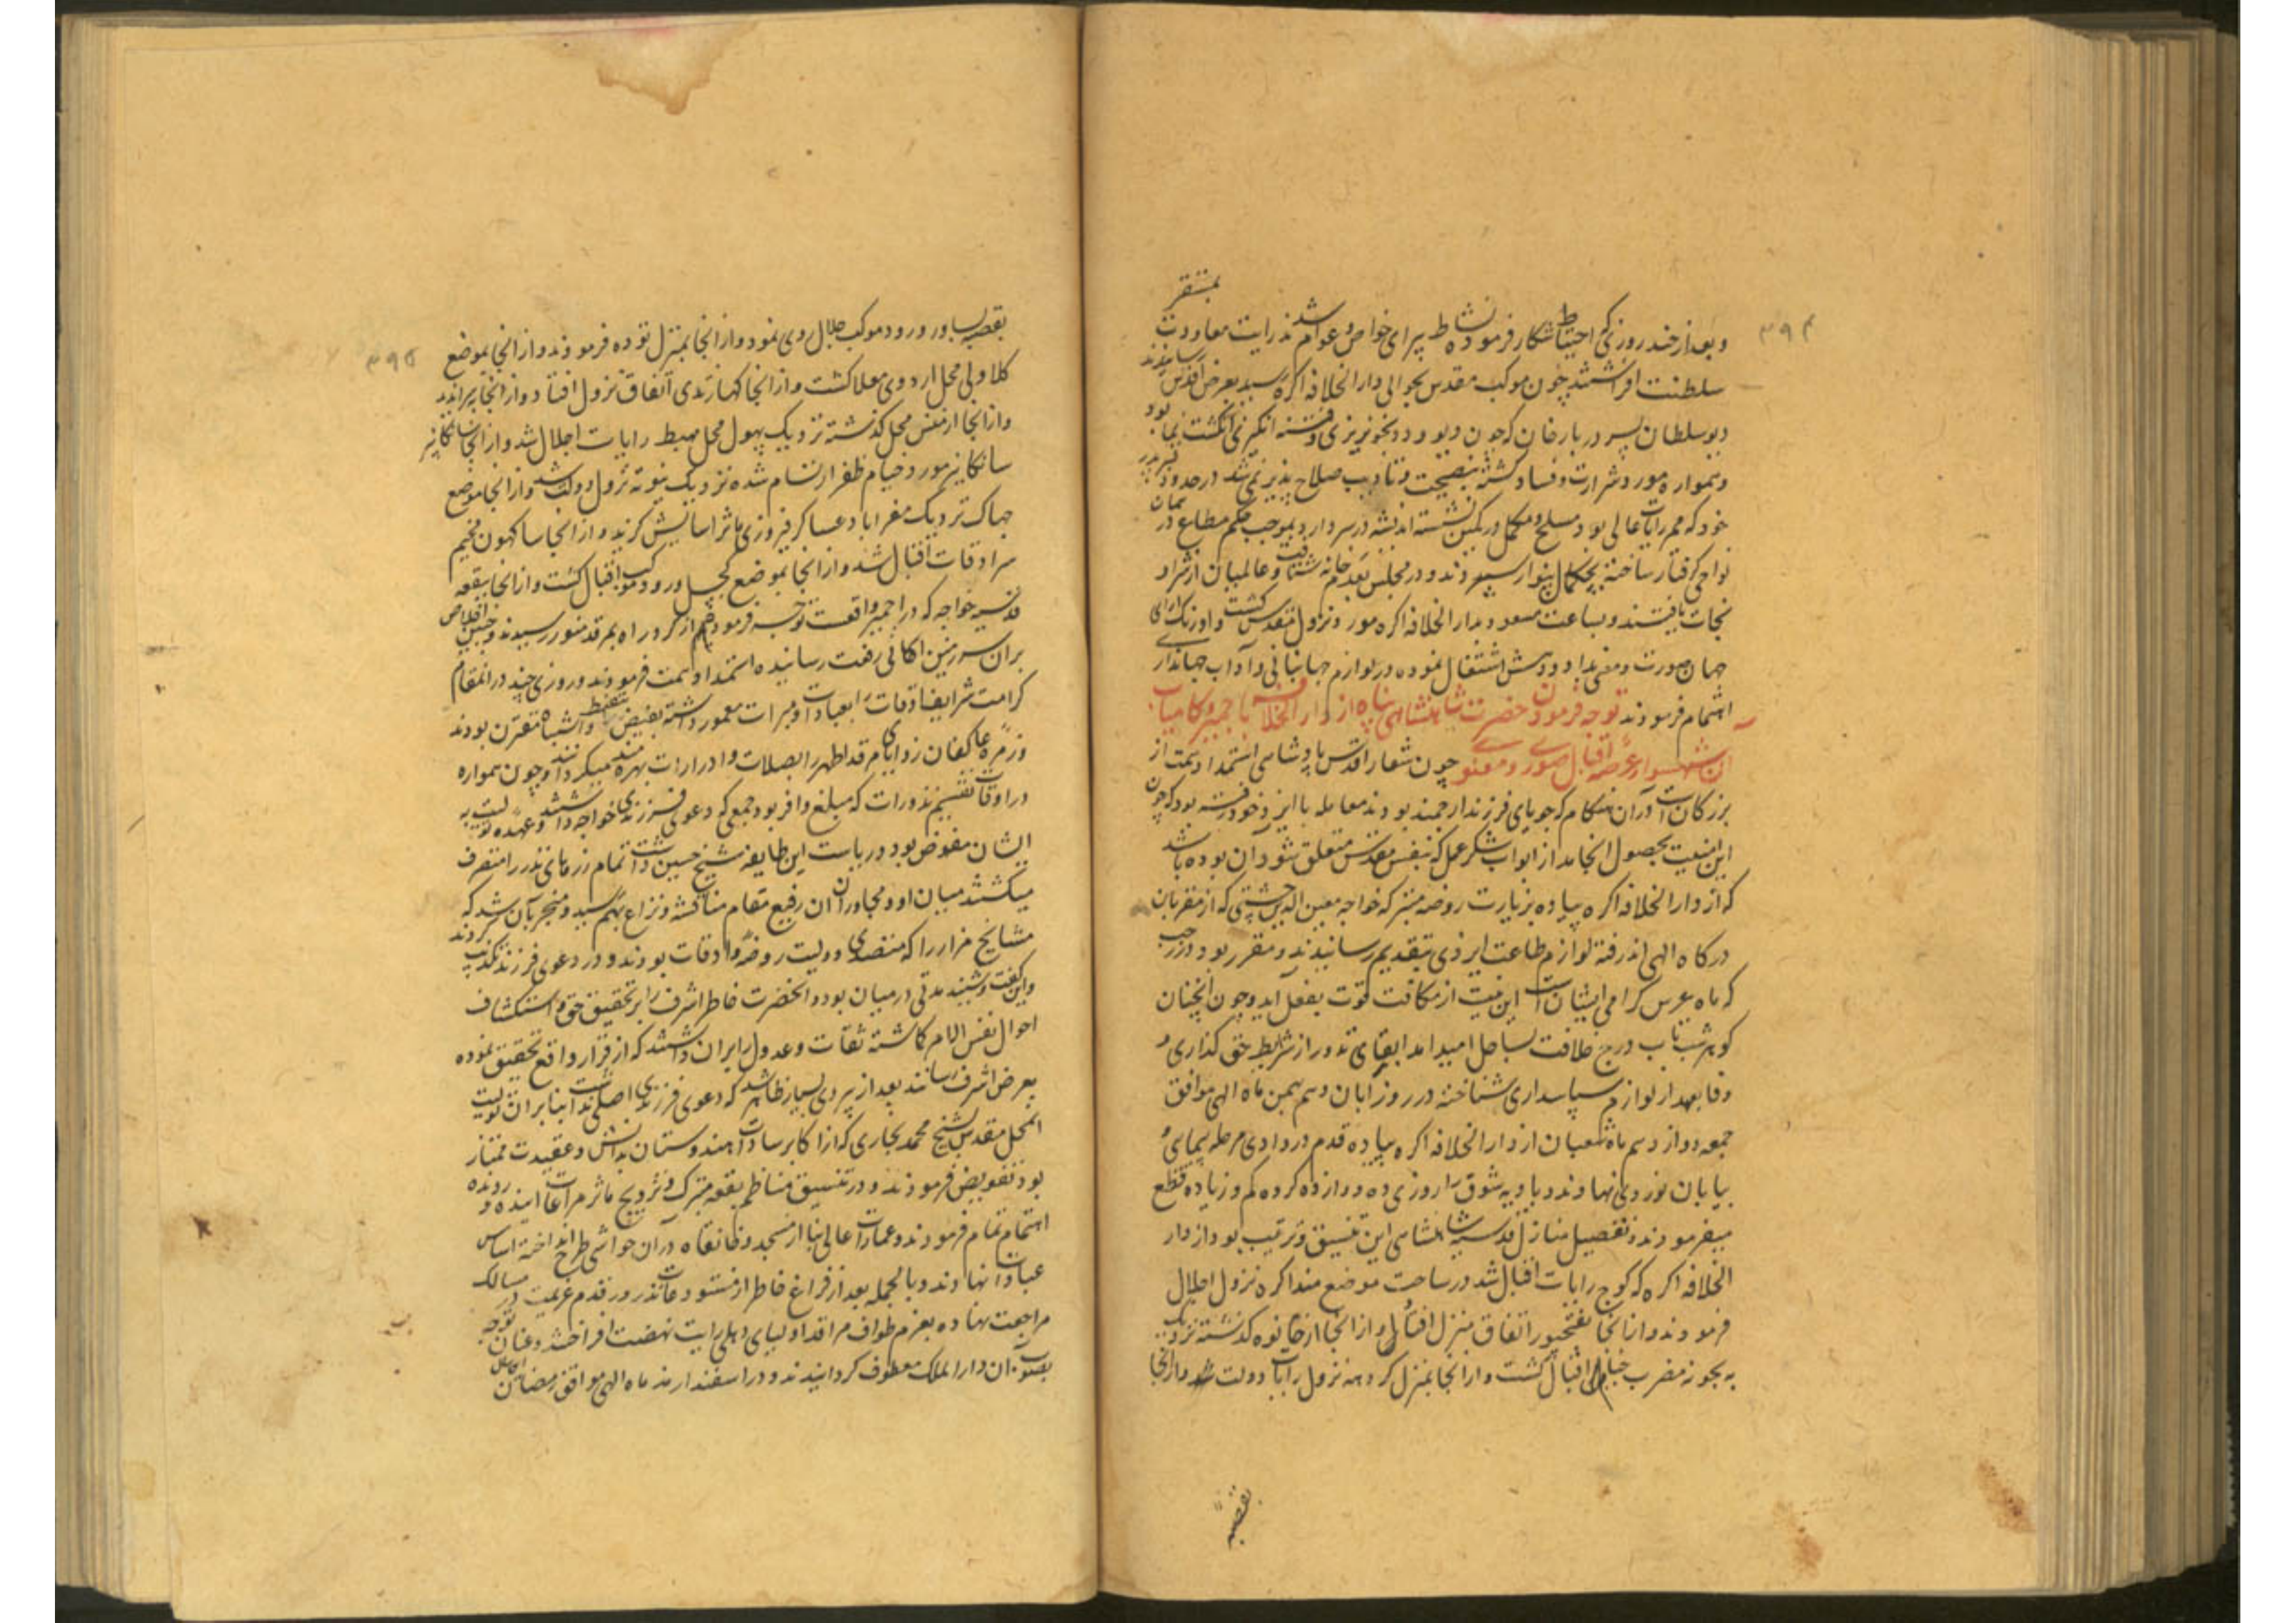 ۳۹۴
بمستقر
وبعد از چند روزی که احتیاط شکار فرموده نشاط پیرای خواص و عوام شدند رایت معاودت
سلطنت افراشتند چون موکب مقدس بحوالی دار الخلافه اکره رسید بعرض اقدس رسانیدند
دیو سلطان پسر دربار خان که چون دیو و دد بخونریزی و فتنه انکیزی انکشت نما بود
وهمواره مورد شرارت و فساد کشته بنصیحت و تادیب صلاح پذیر نمی شد در حدود
خود که مخیم رایات عالی بود مسلح و مکمل در کمین نشسته اندیشه در سر دارد بموجب حکم مطاع در همان
نواحی کرفتار ساخته سپردند و در مجلس بعدم خانه شتافت و عالمیان از شر او
نجات یافتند و بساعت مسعود بدار الخلافه اکره مورد نزول مقدس کشت و اورنک آرای
جهان صورت و معنی بداد و دهش اشتغال نموده در لوازم جهانبانی و آداب جهانداری
اهتمام فرمودند توجه فرمودن حضرت شاهنشاهی پناه از دار الخلافه باجمیر و کامیاب
آن شهسوار عرصه اقبال صوری و معنوی چون شعار اقدس پادشاهی استمداد همت از
بزرکان است در آن هنکام که جویای فرزند ارجمند بودند معامله با ایزد خود رفته بود که چون
این امنیت بحصول انجامد از ابواب شکر عملی که بنفس مقدس متعلق شود آن بوده باشد
که از دار الخلافه اکره پیاده بزیارت روضه متبرکه خواجه معین الدین چشتی که از مقربان
درکاه الهی اند رفته لوازم طاعت ایزدی بتقدیم رسانیدند و مقرر بود در رجب
که ماه عرس کرامی ایشان است این نیت از مکافت قوت بفعل آید و چون آنچنان
کوهر شب تاب درج خلافت بساحل امید آمد ایفای نذور از شرایط حق کذاری و
وفا بعهد از لوازم سپاسداری شناخته در روز ابان دهم بهمن ماه الهی موافق
جمعه دوازدهم ماه شعبان از دار الخلافه اکره پیاده قدم در وادی مرحله پیمای و
بیابان نوردی نهادند و بادیه شوق را روزی ده دوازده کروه کم و زیاده قطع
میفرمودند و تفصیل منازل قدسیه شاهنشاهی این تنسیق و ترتیب بود از دار
الخلافه اکره که کوچ رایات اقبال شد در ساحت موضع منداکره نزول اجلال
فرمودند و از انجا بفتحپور اتفاق منزل افتاد و از انجا از خانوه کذشته نزدیک
به بجونه مضرب خیام اقبال کشت و از انجا بمنزل کروهه نزول رایات دولت شد و از انجا
بقصبه
۳۹۵
بقصبه بساور ورود موکب جلال روی نمود و از انجا بمنزل توده فرمودند و از انجا بموضع
کلاولی محل اردوی معلا کشت و از انجا کهارندی اتفاق نزول افتاد و از انجا
و از انجا از محل کذشته نزدیک پهول محل مهبط رایات اجلال شد و از انجا سانکانیر
سانکانیر مورد خیام ظفر ارتسام شده نزدیک نیوته نزول دولت شد و از انجا موضع
جهاک نزدیک معزاباد عساکر فیروزی ماثر آسایش کزید و از انجا ساکهون مخیم
سرادقات اقبال شد و از انجا بموضع کجیل ورود موکب اقبال کشت و از انجا ببقعه
قدسیه خواجه که در اجمیر واقعست توجه فرمودند هم از کرد راه بمرقد منور رسیدند و جبین اخلاص
بران سرزمین آسمانی رفعت رسانیده استمداد همت فرمودند و روزی چند در انمقام
کرامت شرایف اوقات را بعبادات و مبرات معمور داشته بفیض تیقظ و انتباه مقترن بودند
و زمره عاکفان زوایای مرقد اطهر را بصلات و ادرارات بهره مند میکردانیدند و چون همواره
در اوقات تقسیم نذورات که مبلغ وافر بود جمعی که دعوی فرزندی خواجه داشتند و عهده تولیت به
ایشان مفوض بود و ریاست این طایفه شیخ حسین داشت تمام زرهای نذر را متصرف
میکشتند میان او و مجاوران آن رفیع مقام مناقشه و نزاع بهم رسید و منجر بآن شد که
مشایخ مزار را که متصدی تولیت روضه و اوقات بودند و در دعوی فرزندی تکذیب کردند
و این کفت و شنید مدتی در میان بود و آنحضرت خاطر اشرف را بر تحقیق حق و استکشاف
احوال نفس الامر کماشته ثقات و عدول را بران داشتند که از قرار واقع تحقیق نموده
بعرض اشرف رسانند بعد از پیروی بسیار ظاهر شد که دعوی فرزندی اصلی نداشت بنا بران تولیت
آن محل مقدس بشیخ محمد بخاری که از اکابر سادات هندوستان بدانش و عقیدت ممتاز
بود تفویض فرمودند و در تنسیق مناظم بقعه متبرک و ترویج ماثر مراعات اینده و رونده
اهتمام تمام فرمودند و عمارات عالی بنا از مسجد و خانقاه در آن حواشی طرح انداخته اساس
عبادات نهادند و بالجمله بعد از فراغ خاطر از مستودعات نذر و قدم عزیمت در مسالک
مراجعت نهاده بعزم طواف مراقد اولیای دهلی رایت نهضت افراختند و عنان توجه
بصوب آن دار الملک معطوف کردانیدند و در اسفندارمذ ماه الهی موافق رمضان